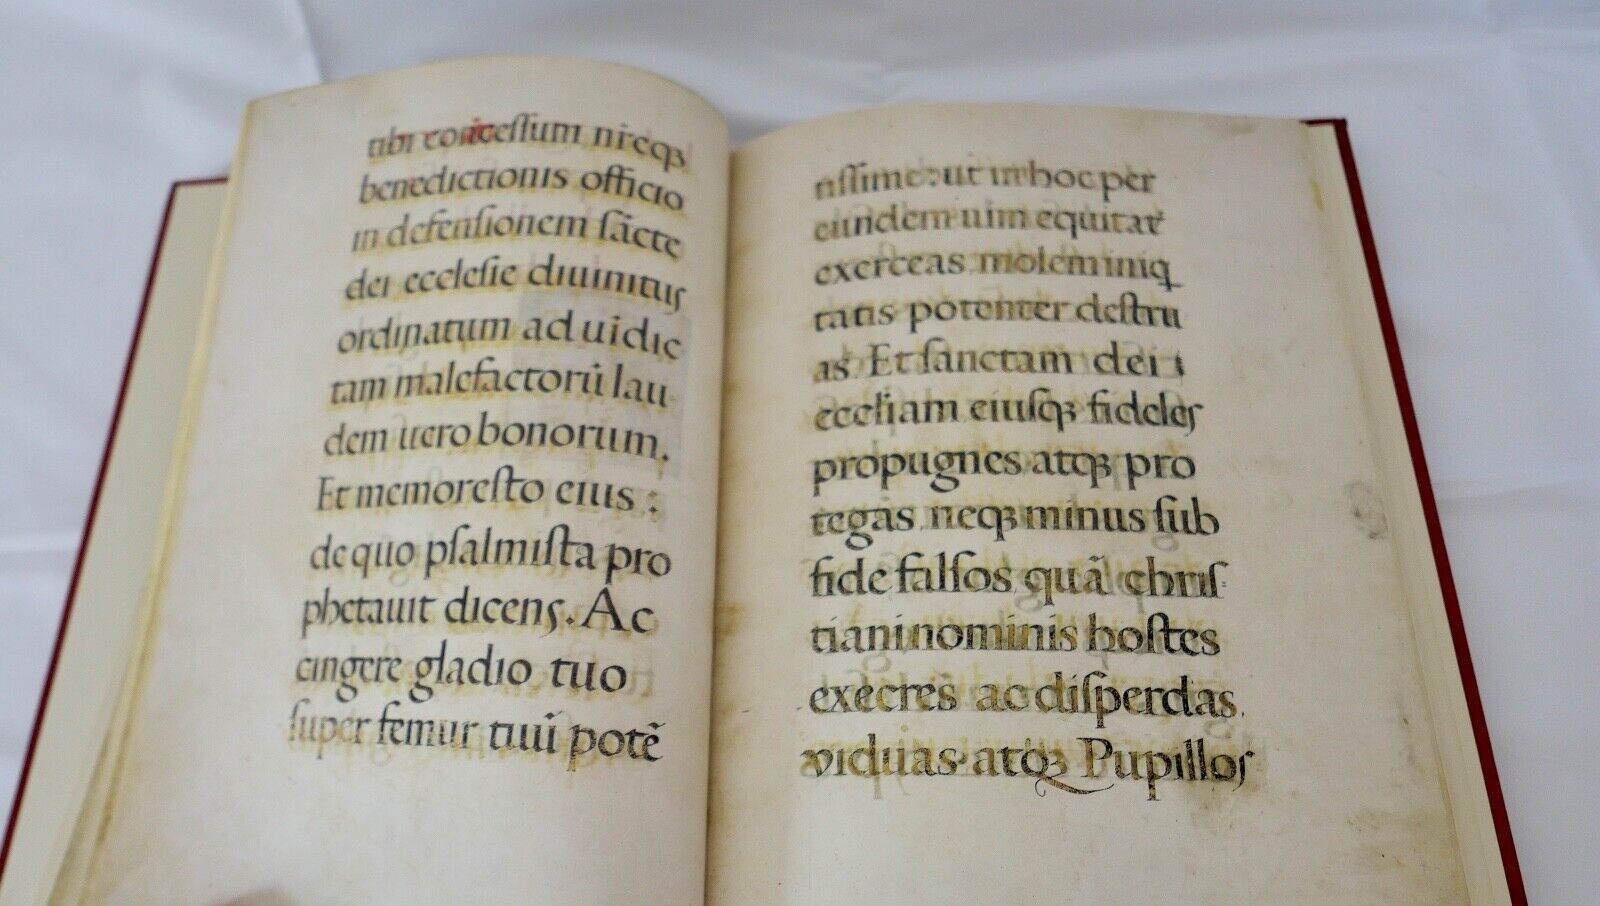 tibi concessum nr̄eqꝫ
benedictionis officio
in defensionem sācte
dei ecclesie diuinitus
ordinatum ad uidic
tam malefactorū lau
dem uero bonorum.
Et memoresto eius :
de quo psalmista pro
phetauit dicens. Ac
cingere gladio tuo
super femur tuū potē
tissime : ut in hoc per
eundem uim equitat᷒
exerceas molem iniq
tatis potenter destru
as. Et sanctam dei
eccliam eiusqꝫ fideles
propugnes atqꝫ pro
tegas neqꝫ minus sub
fide falsos quā chris
tiani nominis hostes
execres ac disperdas.
viduas atqꝫ Pupillos